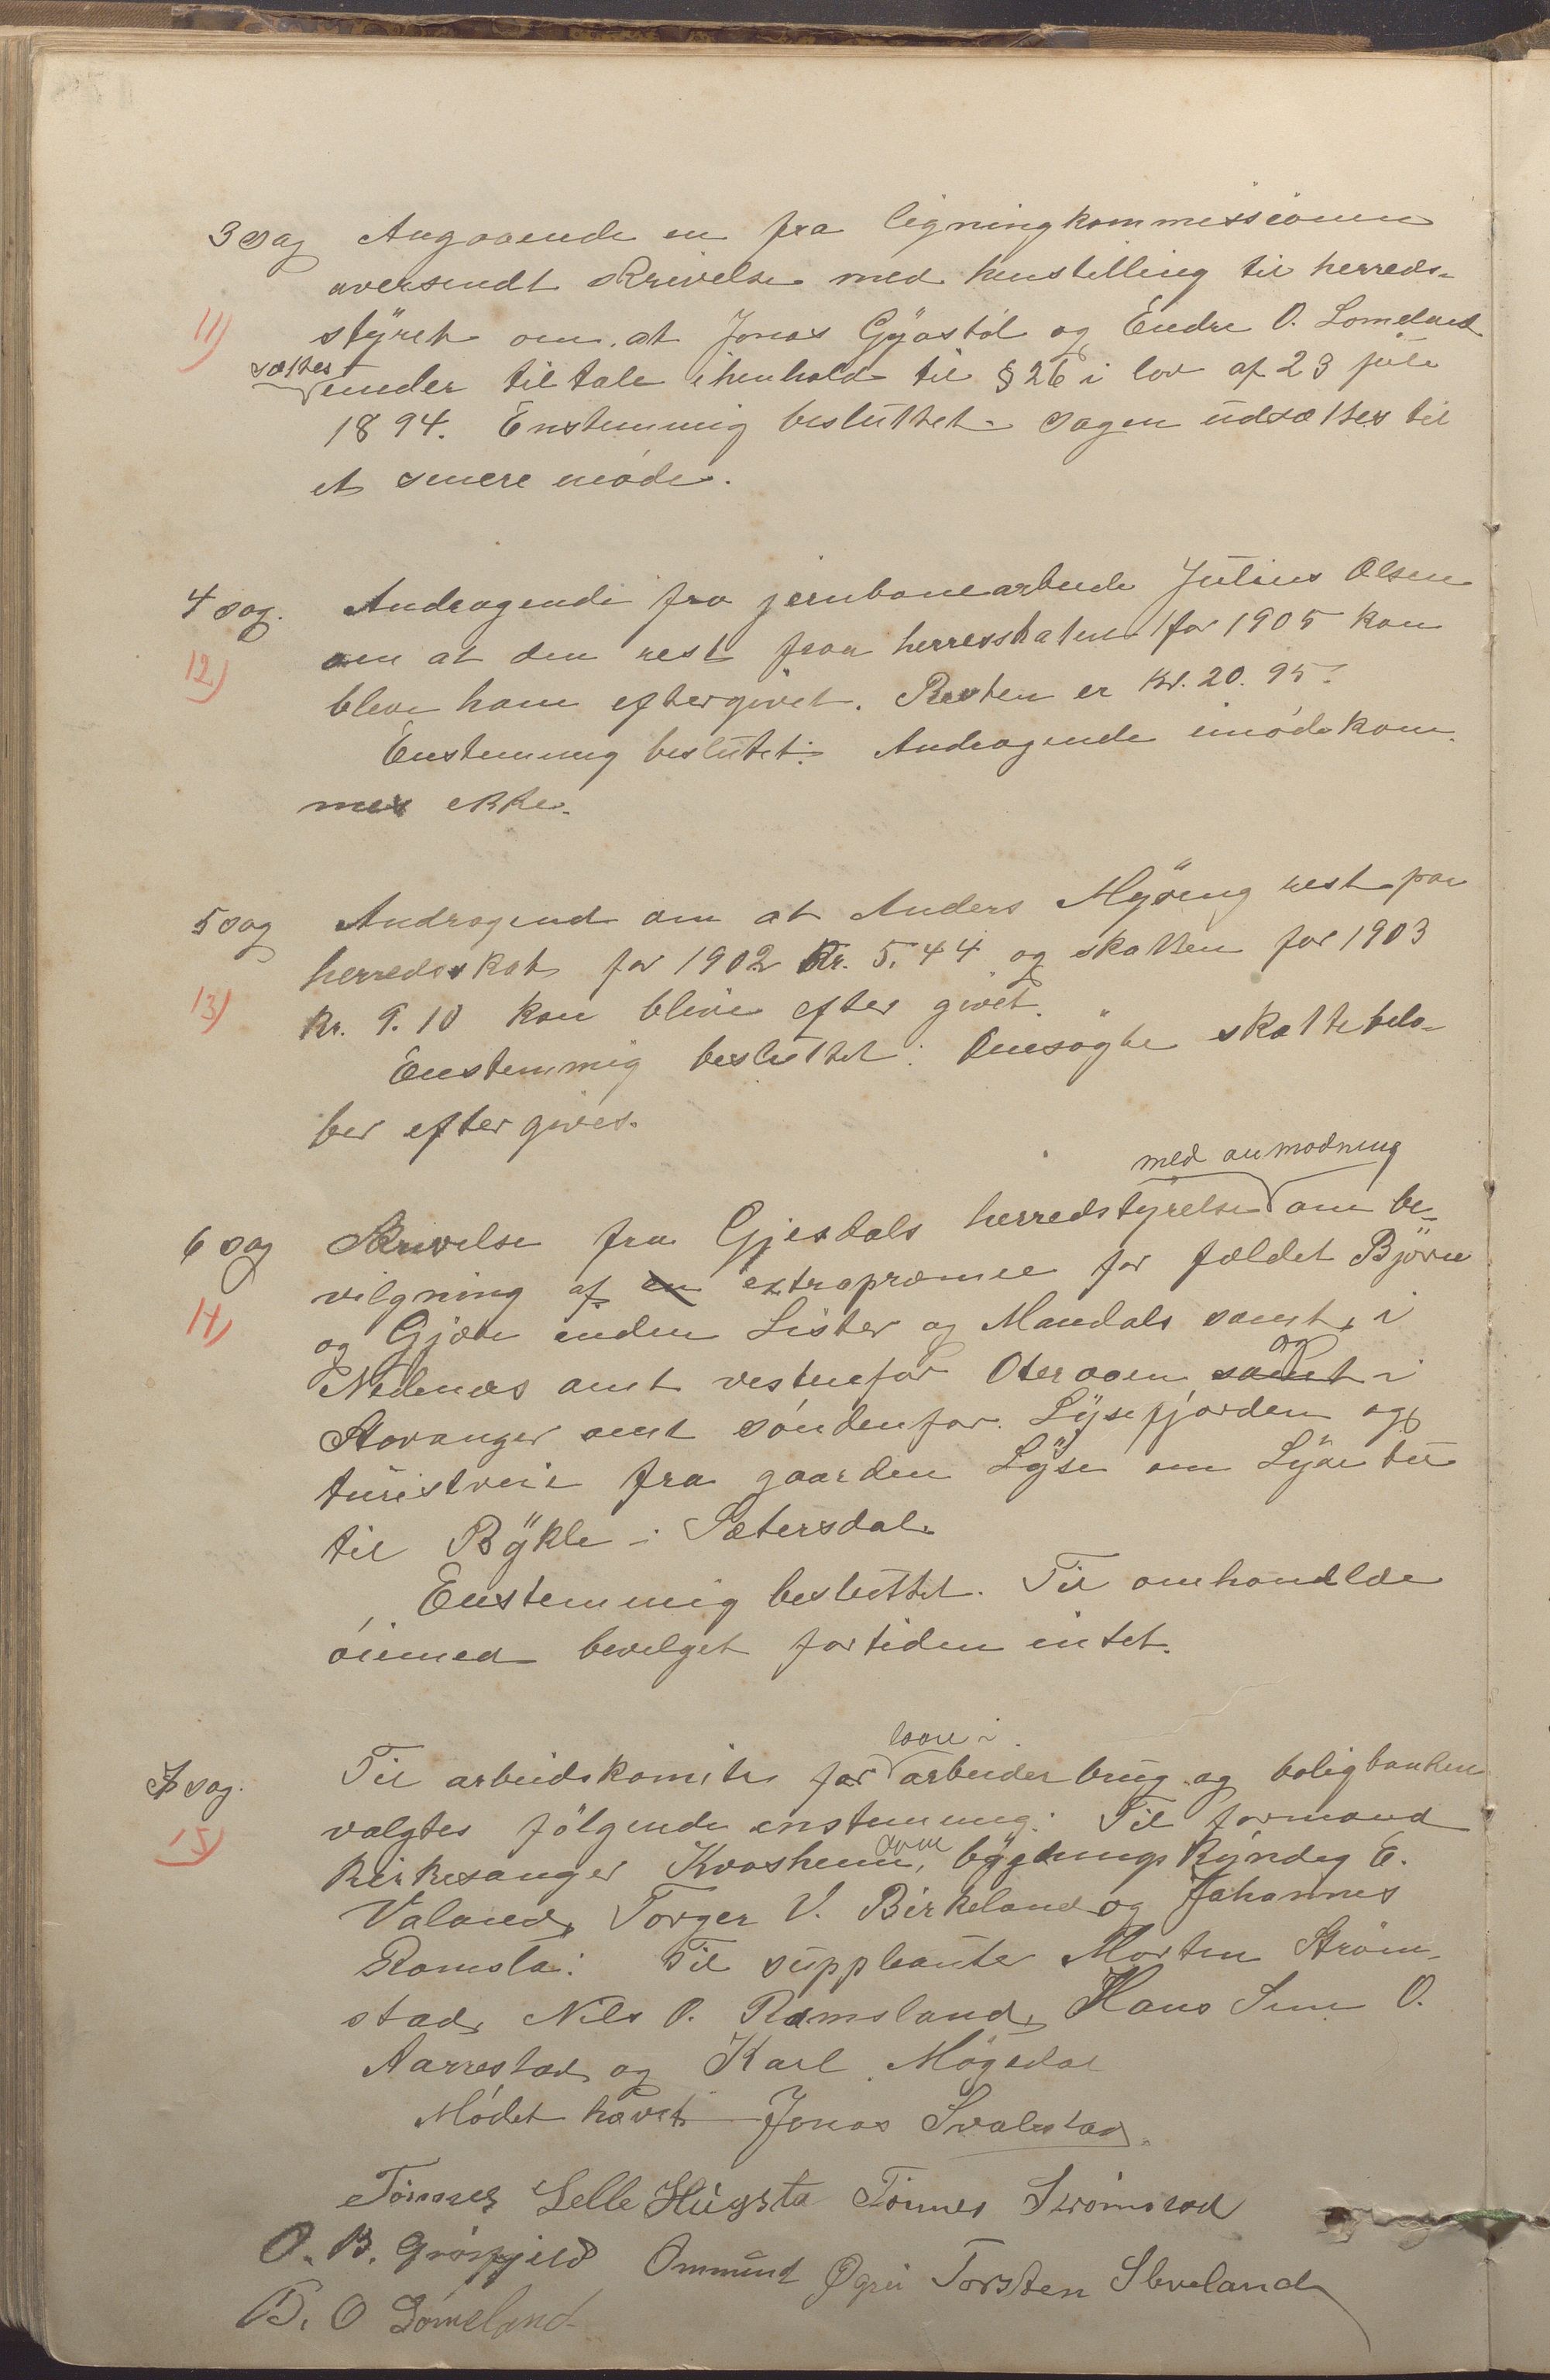 3 sag Angaaende en fra ligningkommissionen
oversendt skrivelse med henstilling til herreds-
11) styret om at Jonas Gyastöl og Endre O. Lomeland
sættes under tiltale ihenhold til § 26 i lov af 23 juli
1894. Enstemmig besluttet. Sagen udsættes til
et senere möde.
4 sag. Andragende fra jernbanearbeide Julius Olsen
12) om at den rest paa herresskaten for 1905 kan
bleve ham eftergivet. Resten er Kr. 20.95.
Enstemmig beslutet: Andragende imödekom-
mes ekke.
5 sag Andragend om at Anders Myöeng rest paa
herredsskat for 1902 Kr. 5.44 og skatten for 1903
13) Kr. 9.10 kan blive efter givet.
Enstemmig besluttet: Omsögte skattebelö-
ber eftergives.
med anmodning
6 sag Skrivelse fra Gjesdals herredstyrelse om be-
vilgning af en extrapræmie for fældet Björn
14) og Gjæte inden Lister og Mandals samt i
og
Nedenæs amt vestenfor Oteraaen samt i
Stavanger amt söndenfor Lysefjorden og
turistveie fra gaarden Lyse om
til Bykle i Sætersdal.
Enstemmig besluttet. Til omhandlde
öiemed bevilget fortiden intet.
laane i
7 sag. Til arbeidskomite for arbeiderbrug og boligbanken
15) valgtes fölgende enstemmig: Til formand
kirkesanger Kvasheim, bygningskyndig E.
Valand, Torger V. Birkeland og Johannes
Ramsla: Til suppleanter Morten Ström-
stad, Nils O. Ramsland, Hans Sem O.
Aarrestad og Karl Mögedal
Mödet hævet Jonas Svalestad.
Tönnes Selle Hugsta Tönnes Strömstad
O. B. Grösfjeld Ommund Øgrei Torsten Sleveland
B. O Lömeland